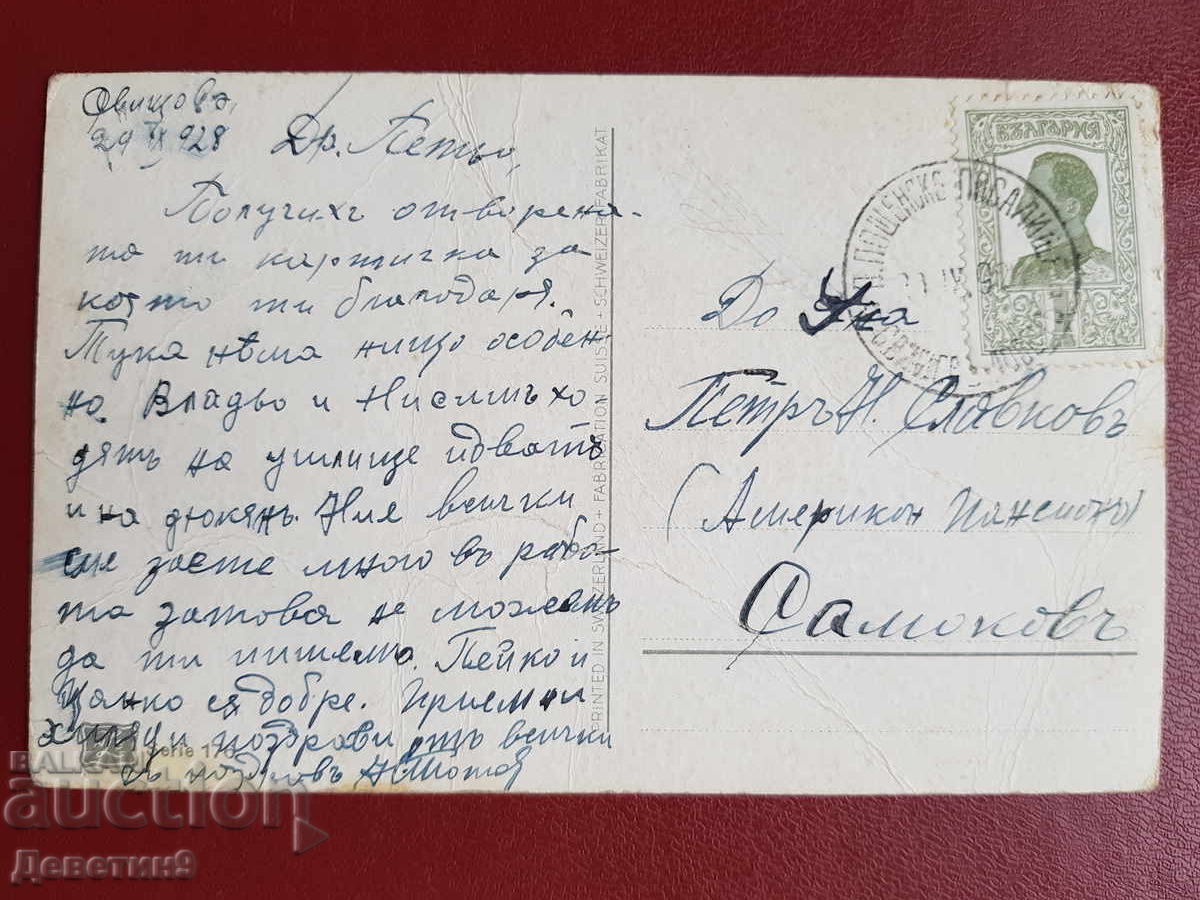 29 928
Др. Петьо,
Получихъ отворена-
та ти картичка за
която ти благодаря.
Тука нѣма нищо особен-
но. Владьо и Нисимъ хо
дятъ на училище идватъ
и на дюкянъ. Ние всички
сме заети много въ рабо-
та затова не можемъ
да ти пишемъ. Пейко и
Цанко са добре. Приеми
хиляди поздрави отъ всички
Съ поздравъ
PRINTED IN SWITZERLAND + FABRICATION SUISSE + SCHWEIZER-FABRIKAT
Serie 176
БЪЛГАРИЯ
До
Петръ Н. Славковъ
(Американ Пансионъ)
Самоковъ
BALKAN
auction
Деветин9